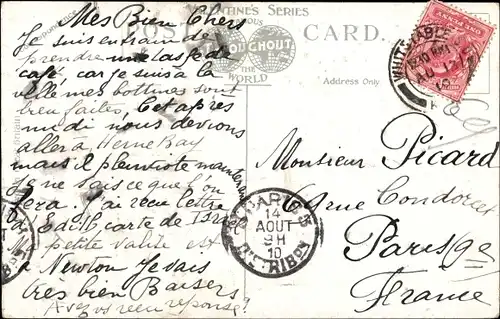 VALENTINE'S SERIES
FAMOUS
THROUGHOUT
THE WORLD
POST CARD.
Address Only
WHITSTABLE
Mes Bien Chers
Je suis en train de
prendre une tasse de
café, car je suis à la
ville mes bottines sont
bien faites, Cet après
midi nous devrions
aller à Herne Bay
mais il pleuviote maintenant
Je ne sais ce que l'on
fera. J'ai reçu lettre
d'Edith carte de
petite valise est
Newton Je vais
très bien Baisers
Avez vs reçu réponse?
Monsieur Picard
69 rue Condorcet
Paris 9e
France
PARIS
14
AOUT
9H
10
DISTRIBON